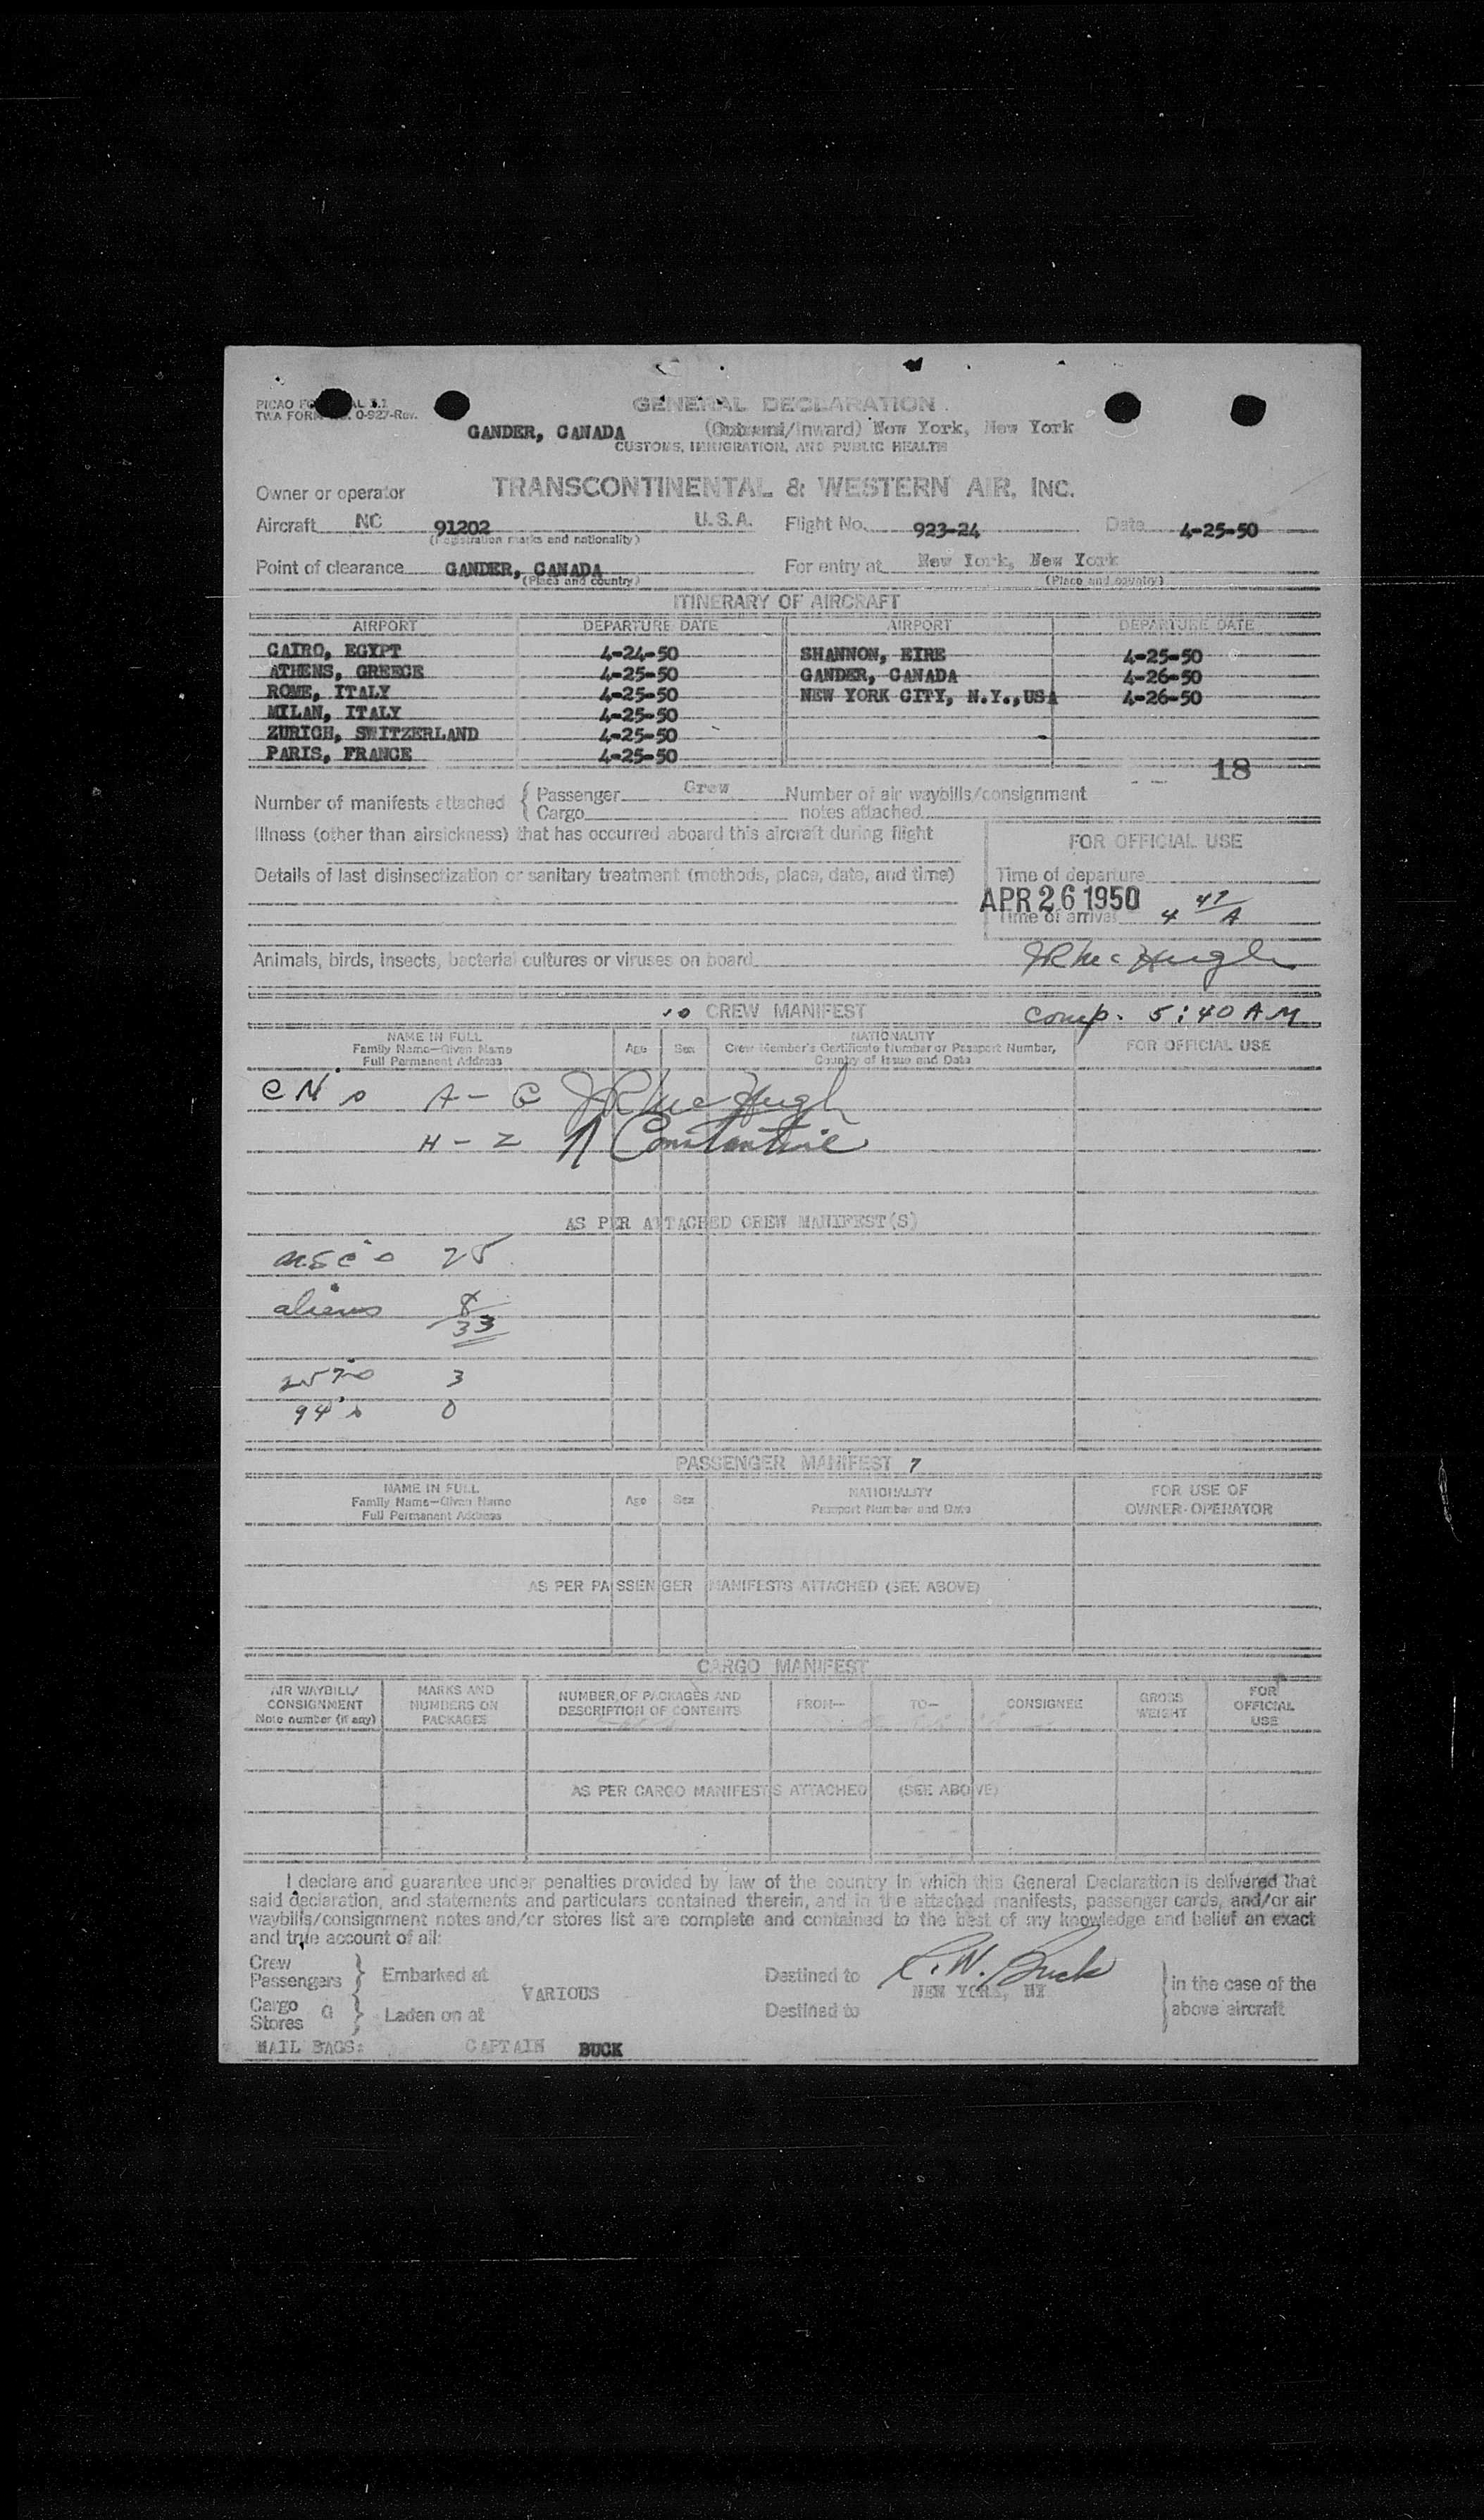 GENERAL DECLARATION
TWA FORM O-927-Rev.
GANDER, CANADA (Outward/Inward) New York, New York
CUSTOMS, IMMIGRATION, AND PUBLIC HEALTH
Owner or operator TRANSCONTINENTAL & WESTERN AIR, INC.
Aircraft NC 91202 U.S.A. Flight No. 923-24 Date 4-25-50
(Registration marks and nationality)
Point of clearance GANDER, CANADA For entry at New York, New York
(Place and country) (Place and country)
ITINERARY OF AIRCRAFT
AIRPORT DEPARTURE DATE AIRPORT DEPARTURE DATE
CAIRO, EGYPT 4-24-50 SHANNON, EIRE 4-25-50
ATHENS, GREECE 4-25-50 GANDER, CANADA 4-26-50
ROME, ITALY 4-25-50 NEW YORK CITY, N.Y.,USA 4-26-50
MILAN, ITALY 4-25-50
ZURICH, SWITZERLAND 4-25-50
PARIS, FRANCE 4-25-50
18
Number of manifests attached { Passenger Crew Number of air waybills/consignment
Cargo notes attached
Illness (other than airsickness) that has occurred aboard this aircraft during flight
FOR OFFICIAL USE
Details of last disinsectization or sanitary treatment (methods, place, date, and time)
Time of departure
APR 26 1950
Time of arrival 4 47/A
Animals, birds, insects, bacterial cultures or viruses on board JR McHugh
10 CREW MANIFEST comp. 5:40 AM
NAME IN FULL Age Sex NATIONALITY FOR OFFICIAL USE
Family Name—Given Name Crew Member's Certificate Number or Passport Number,
Full Permanent Address Country of Issue and Date
CN's A - G JR McHugh
H - Z N Constantine
AS PER ATTACHED CREW MANIFEST(S)
25
aliens 8
33
257's 3
94's 0
PASSENGER MANIFEST 7
NAME IN FULL Age Sex NATIONALITY FOR USE OF
Family Name—Given Name Passport Number and Date OWNER-OPERATOR
Full Permanent Address
AS PER PASSENGER MANIFESTS ATTACHED (SEE ABOVE)
CARGO MANIFEST
AIR WAYBILL/ MARKS AND NUMBER OF PACKAGES AND FROM— TO— CONSIGNEE GROSS FOR
CONSIGNMENT NUMBERS ON DESCRIPTION OF CONTENTS WEIGHT OFFICIAL
Note number (if any) PACKAGES USE
AS PER CARGO MANIFESTS ATTACHED (SEE ABOVE)
I declare and guarantee under penalties provided by law of the country in which this General Declaration is delivered that
said declaration, and statements and particulars contained therein, and in the attached manifests, passenger cards, and/or air
waybills/consignment notes and/or stores list are complete and contained to the best of my knowledge and belief an exact
and true account of all:
Crew
Passengers } Embarked at Destined to R.W. Buck } in the case of the
VARIOUS NEW YORK, NY
Cargo
Stores } Laden on at Destined to above aircraft
MAIL BAGS: CAPTAIN BUCK